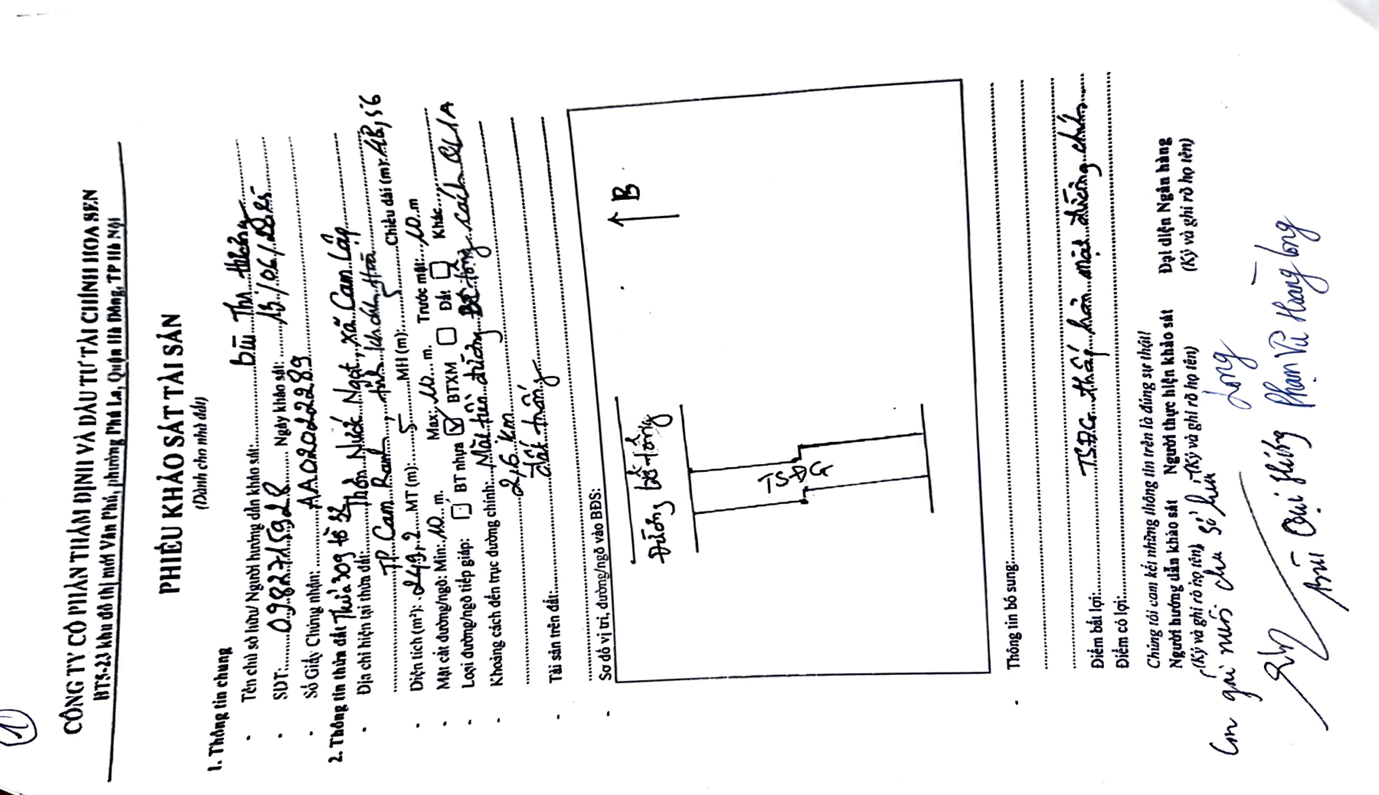 1
CÔNG TY CỔ PHẦN THẨM ĐỊNH VÀ ĐẦU TƯ TÀI CHÍNH HOA SEN
BT5-23 khu đô thị mới Văn Phú, phường Phú La, Quận Hà Đông, TP Hà Nội
PHIẾU KHẢO SÁT TÀI SẢN
(Dành cho nhà đất)
1. Thông tin chung
- Tên chủ sở hữu/ Người hướng dẫn khảo sát: Bùi Thị
- SĐT: 0982715928 Ngày khảo sát: 13/06/2025
- Số Giấy Chứng nhận: AA02022289
2. Thông tin thửa đất Thửa 309 tờ 32
- Địa chỉ hiện tại thửa đất: Thôn Nước Ngọt, xã Cam Lập
TP. Cam Ranh, tỉnh Khánh Hoà
- Diện tích (m²): 249,2 MT (m): 5 MH (m): 5 Chiều dài (m): 48,56
- Mặt cắt đường/ngõ: Min: 10 m. Max: 10 m. Trước mặt: 10 m
- Loại đường/ngõ tiếp giáp: ☐ BT nhựa ☑ BTXM ☐ Đất ☐ Khác
- Khoảng cách đến trục đường chính: Mặt tiền đường Bê tông cách QL1A
2,6 km
- Tài sản trên đất: Đất trống
- Sơ đồ vị trí, đường/ngõ vào BĐS:
B
Đường bê tông
TSĐG
- Thông tin bổ sung:
Điểm bất lợi: TSĐG thấp hơn mặt đường chính
Điểm có lợi:
Chúng tôi cam kết những thông tin trên là đúng sự thật!
Người hướng dẫn khảo sát Người thực hiện khảo sát Đại diện Ngân hàng
(Ký và ghi rõ họ tên) (Ký và ghi rõ họ tên) (Ký và ghi rõ họ tên)
Con gái nuôi chủ sở hữu
Long
Phạm Vũ Hoàng Long